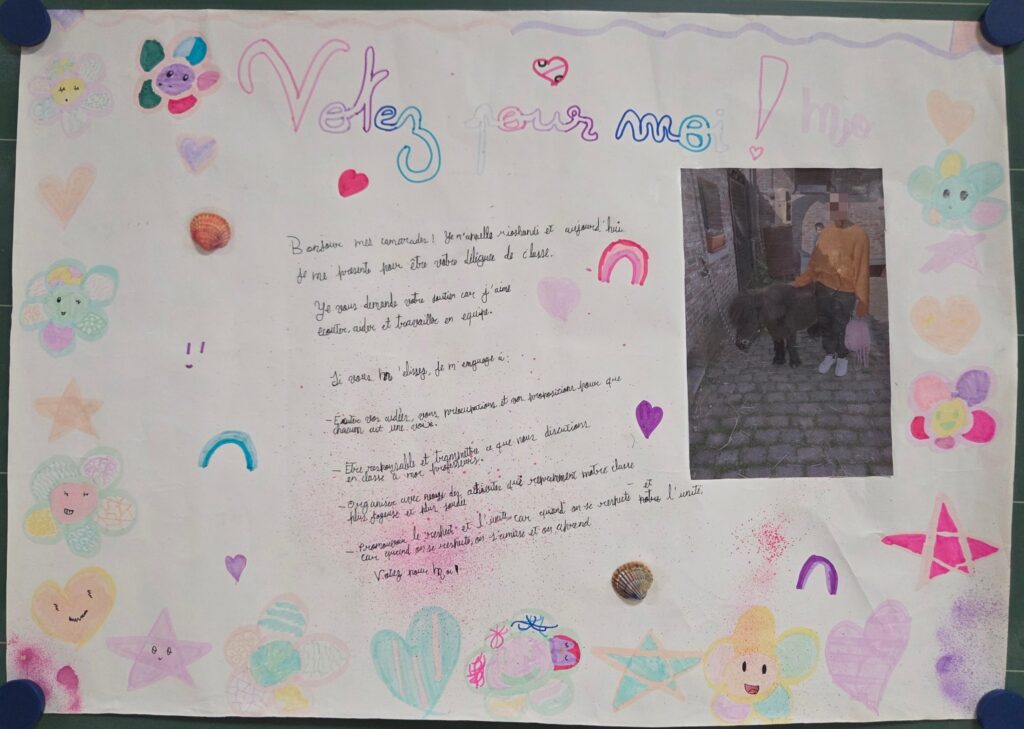 Votez pour moi !
Bonjour mes camarades ! Je m'appelle et aujourd'hui
je me présente pour être votre déléguée de classe.
Je vous demande votre soutien car j'aime
écouter, aider et travailler en equipe.
Si vous m'elisez, je m'engage à :
- Ecouter vos idées, vous préocupations et vos propositions pour que
chacun ait une voix.
- Etre responsable et transmettre ce que nous discutions
en classe à nos professeurs.
- Organiser avec nous des activiter qui representent notre classe
plus joyeuse et plus
- Promouvoir le respect et l'unité car quand on se respecte et notre l'unité,
car quand on se respecte, on s'amuse et on aprend
Votez pour moi !